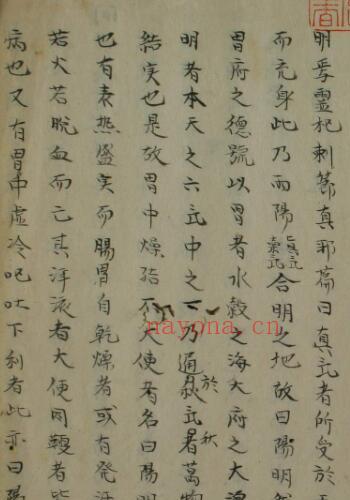 明乎霊枢刺節真邪篇曰真炁者所受於
而充身此乃両陽合明之地故曰陽明
胃府之德號以胃者水穀之海大府之大
明者本天之六炁中之乃通於秋炁萬物
結実也是故胃中燥大便者名曰陽明
也有表熱盛実而腸胃自乾燥者或有発汗
若火若脱血而亡其津液者大便同鞕者皆
病也又有胃中虚冷呕吐下利者此亦曰陽
nayona.cn